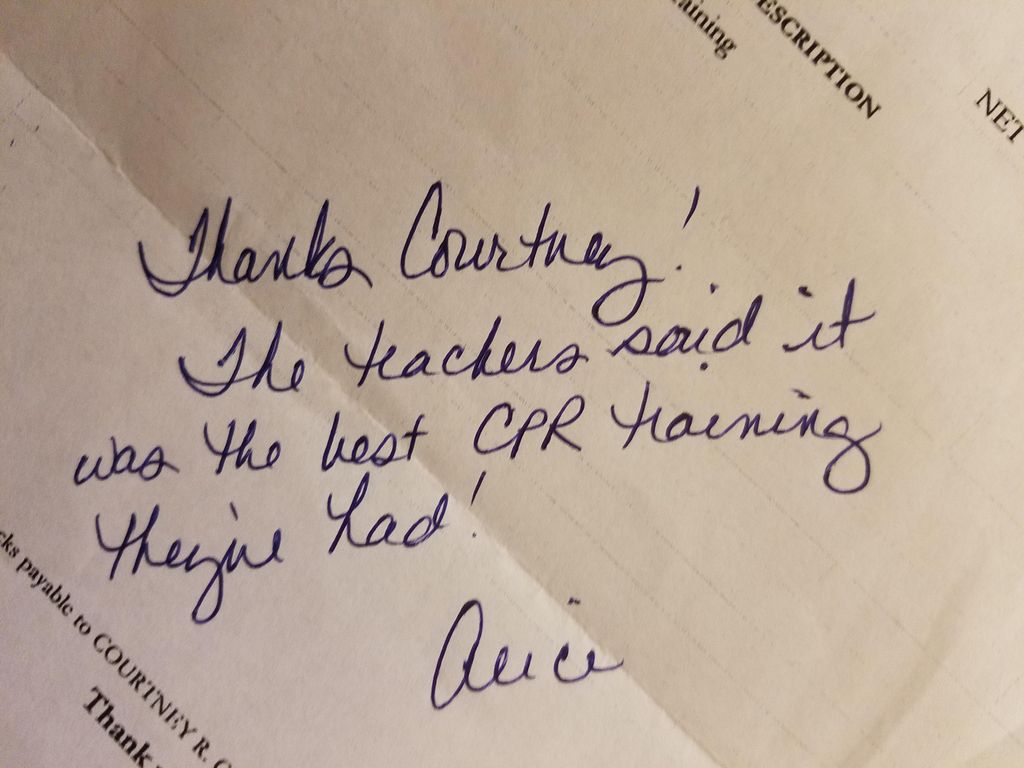 aining
ESCRIPTION
NET
Thanks Courtney!
The teachers said it
was the best CPR training
they've had!
Alice
cks payable to COURTNEY R.
Thank